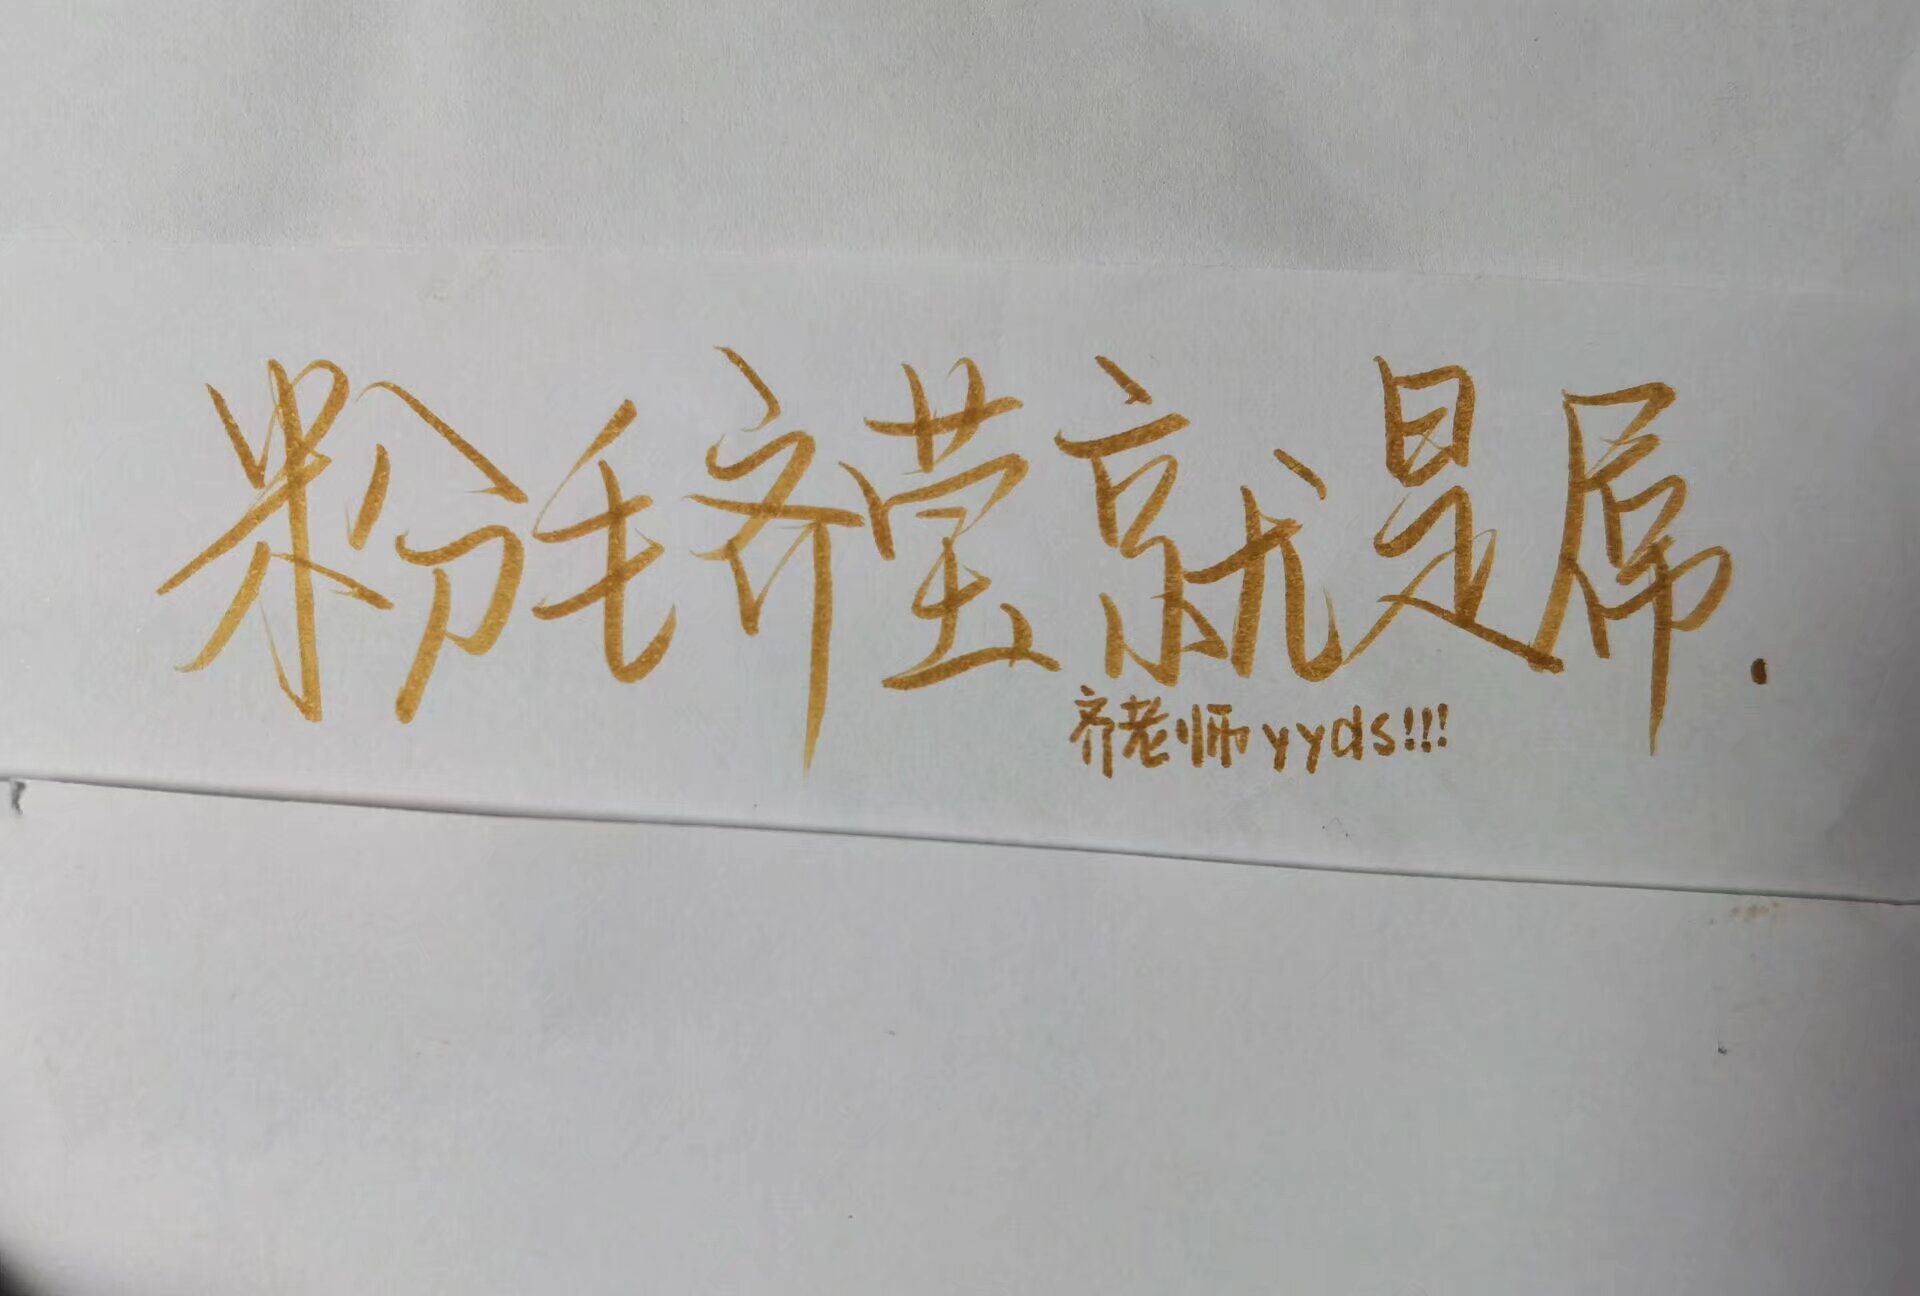 粉毛齐莹就是屌.
齐老师yyds!!!